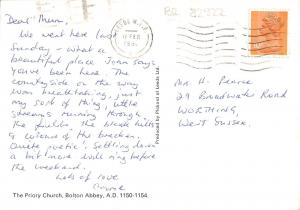 Dear Mum,
We went here last
Sunday - what a
beautiful place Joan says
you've been here. The
countryside on the way
was breathtaking, just
my sort of thing little
streams running through
the fields the bleak hills
& colours of the bracken.
Quite 'poetic'. Settling down
a bit more will ring before
the weekend.
Lots of love
The Priory Church, Bolton Abbey, A.D. 1150-1154.
Produced by Photocol of Leeds Ltd
FEB
Mrs H. Pearce
29 Broadwater Road
WORTHING
WEST SUSSEX.